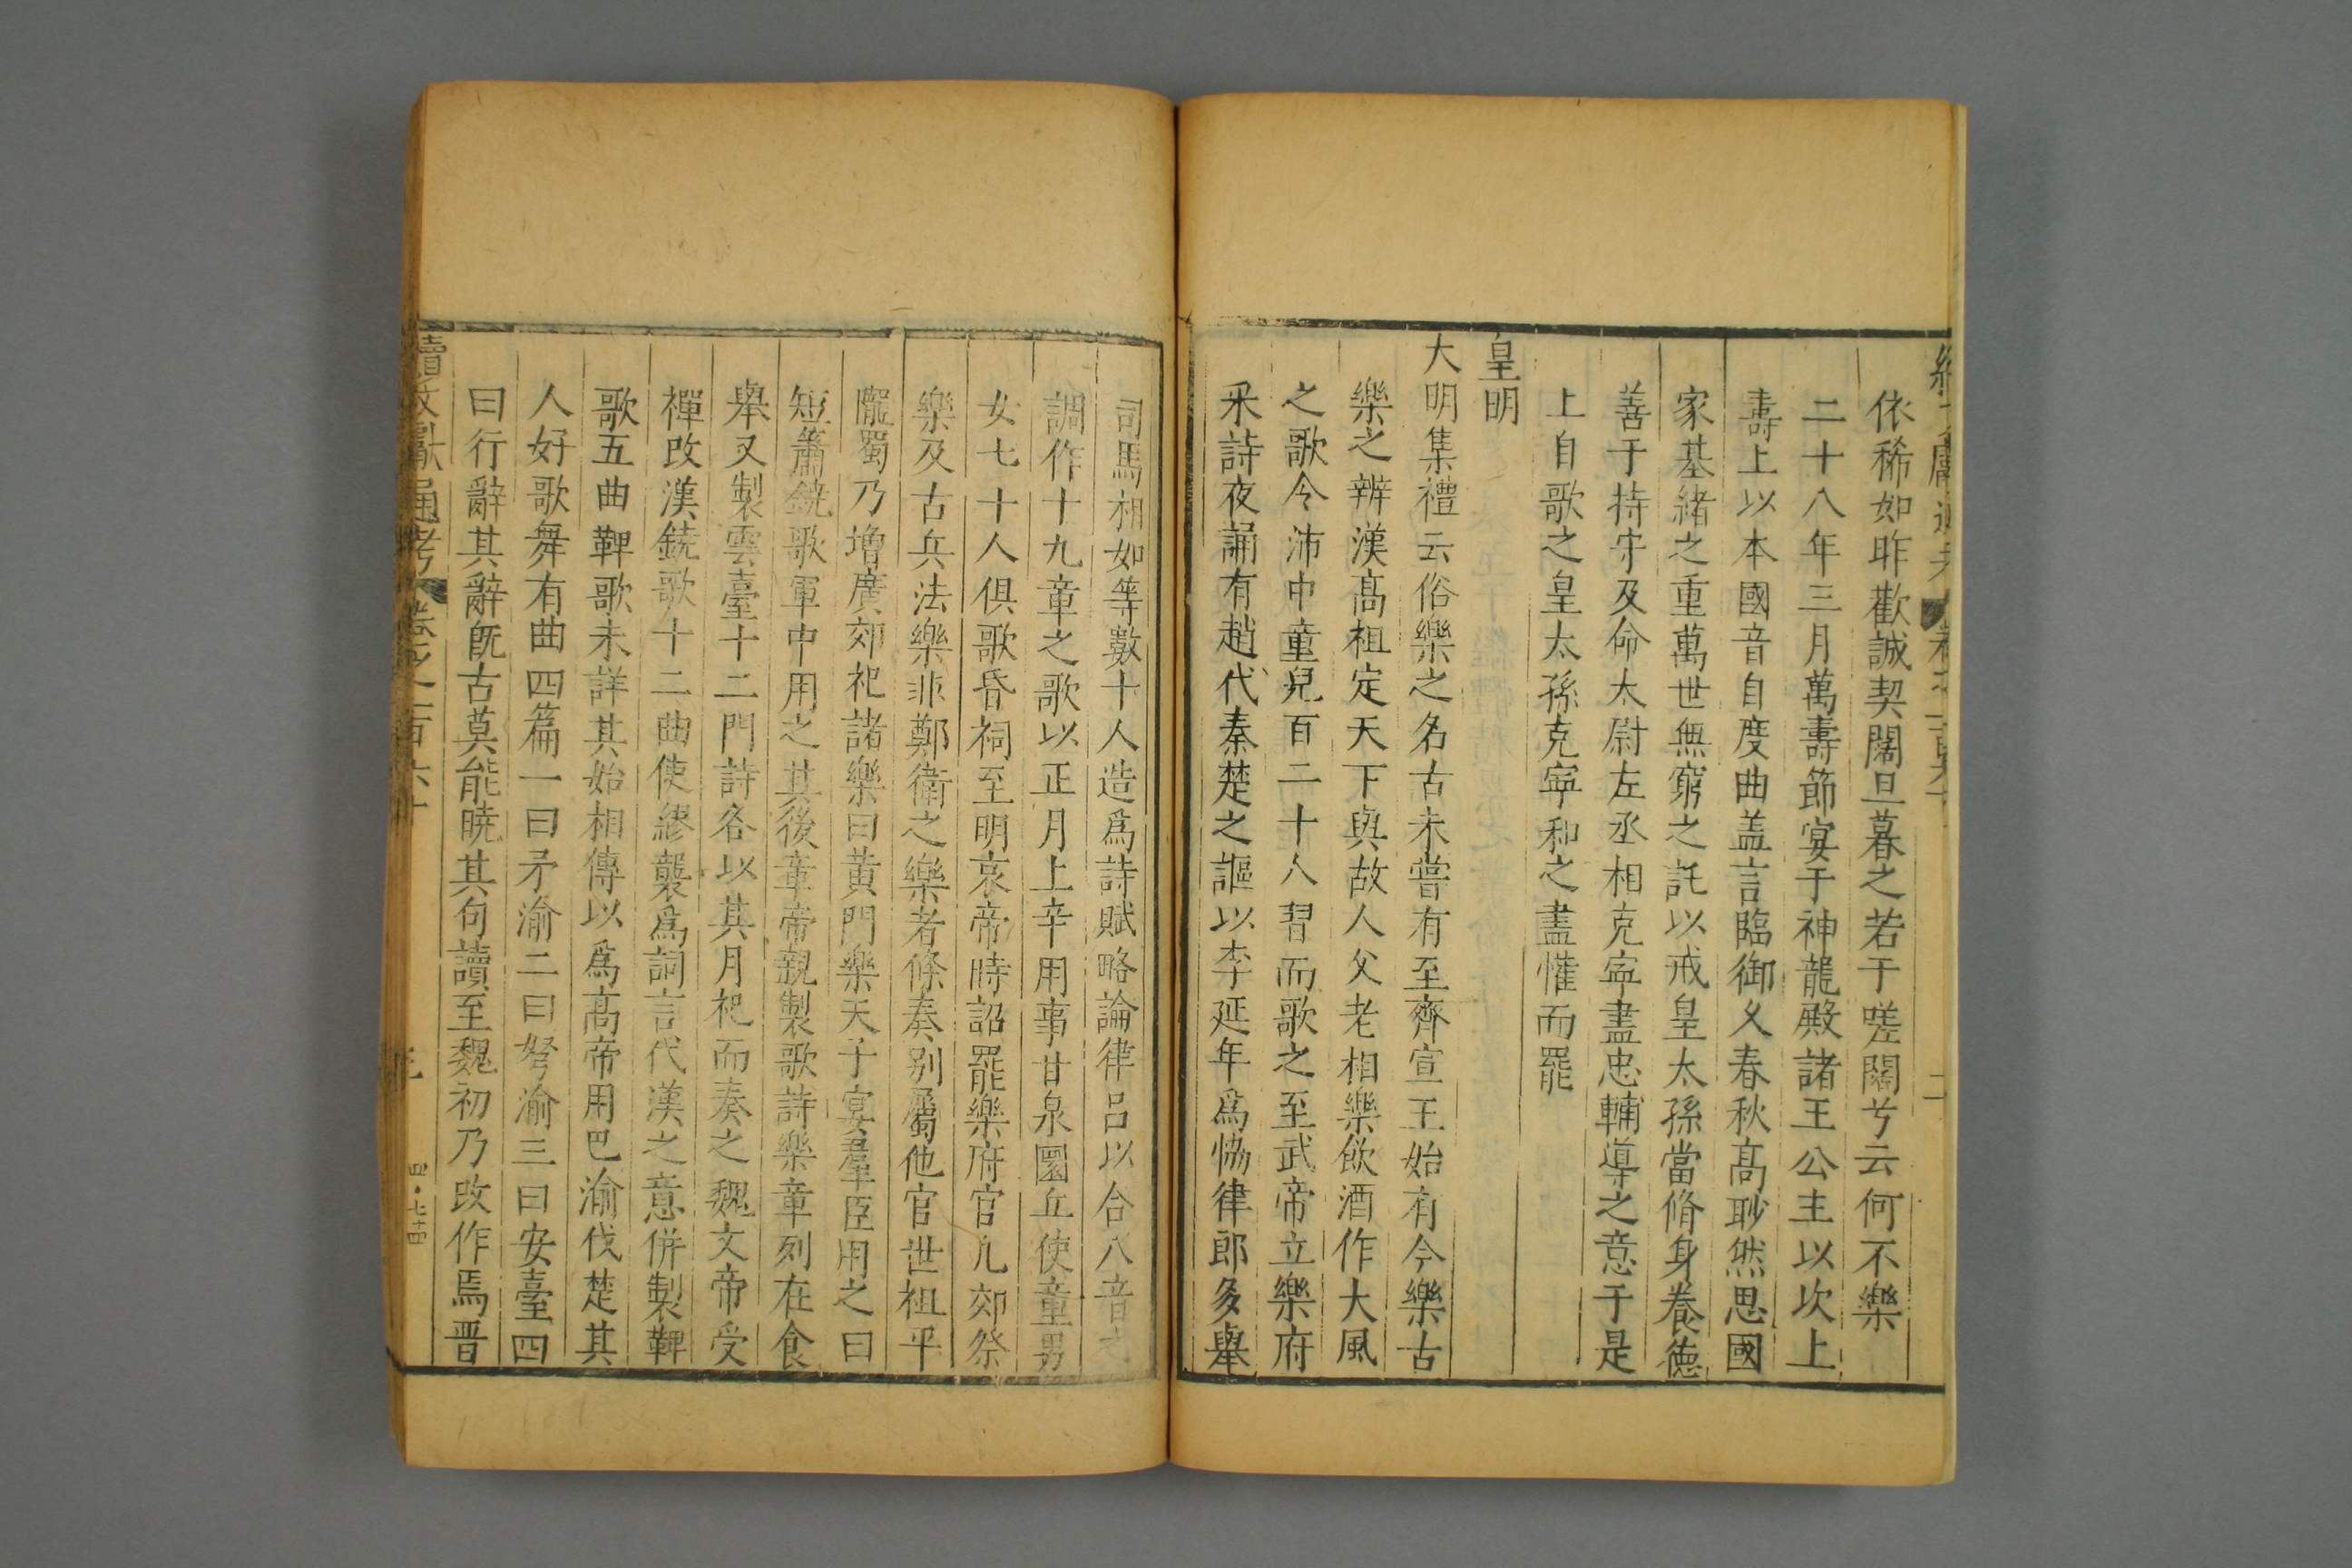 依稀如昨歡誠契闊旦暮之若于嗟闊兮云何不樂
二十八年三月萬壽節宴于神龍殿諸王公主以次上
壽上以本國音自度曲盖言臨御久春秋髙眇然思國
家基緒之重萬世無窮之託以戒皇太孫當脩身養德
善于持守及命太尉左丞相克寧盡忠輔導之意于是
上自歌之皇太孫克寧和之盡懽而罷
皇明
大明集禮云俗樂之名古未嘗有至齊宣王始有今樂古
樂之辨漢髙祖定天下與故人父老相樂飲酒作大風
之歌令沛中童兒百二十人習而歌之至武帝立樂府
采詩夜誦有趙代秦楚之謳以李延年爲恊律郎多舉
司馬相如等數十人造爲詩賦略論律呂以合八音之
調作十九章之歌以正月上辛用事甘泉圜丘使童男
女七十人俱歌昏祠至明哀帝時詔罷樂府官凢郊祭
樂及古兵法樂非鄭衛之樂者條奏别屬他官世祖平
隴蜀乃增廣郊祀諸樂曰黄門樂天子宴羣臣用之曰
短簫鐃歌軍中用之其後章帝親製歌詩樂章列在食
舉又製雲臺十二門詩各以其月祀而奏之魏文帝受
禪改漢鐃歌十二曲使繆襲爲詞言代漢之意併製鞞
歌五曲鞞歌未詳其始相傳以爲髙帝用巴渝伐楚其
人好歌舞有曲四篇一曰矛渝二曰弩渝三曰安臺四
曰行辭其辭旣古莫能曉其句讀至魏初乃改作焉晋
續文獻通考 卷之一百六十